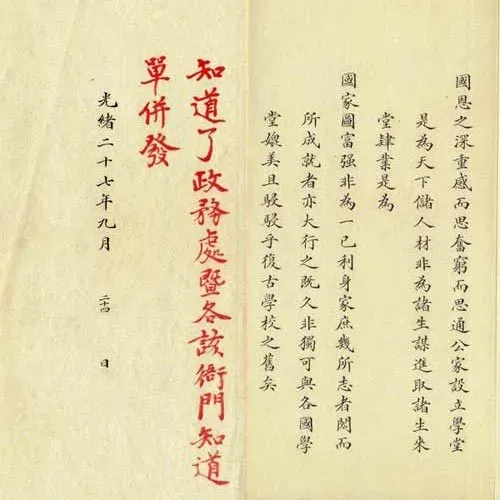 國恩之深重感而思奮窮而思通公家設立學堂
是為天下儲人材非為諸生謀進取諸生來
堂肄業是為
國家圖富强非為一己利身家庶幾所志者閎而
所成就者亦大行之既久非獨可與各國學
堂媲美且駸駸乎復古學校之舊矣
知道了政務處暨各該衙門知道
單併發
光緒二十七年九月 二十四 日